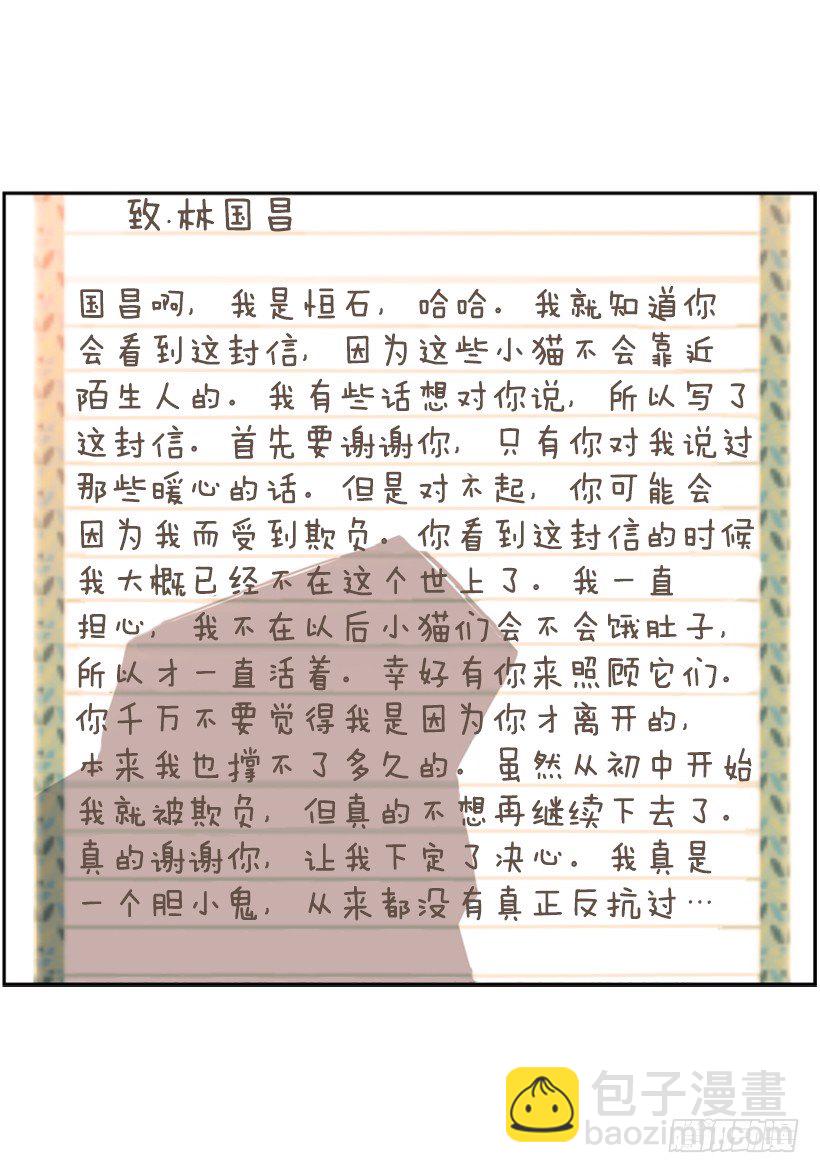 致·林国昌
国昌啊，我是恒石，哈哈。我就知道你
会看到这封信，因为这些小猫不会靠近
陌生人的。我有些话想对你说，所以写了
这封信。首先要谢谢你，只有你对我说过
那些暖心的话。但是对不起，你可能会
因为我而受到欺负。你看到这封信的时候
我大概已经不在这个世上了。我一直
担心，我不在以后小猫们会不会饿肚子，
所以才一直活着。幸好有你来照顾它们。
你千万不要觉得我是因为你才离开的，
本来我也撑不了多久的。虽然从初中开始
我就被欺负，但真的不想再继续下去了。
真的谢谢你，让我下定了决心。我真是
一个胆小鬼，从来都没有真正反抗过…
包子漫畫
baozimh.com